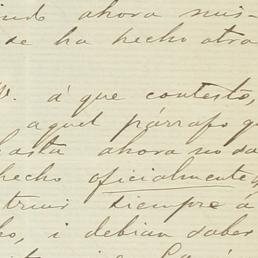 ahora mis-
se ha hecho otra
á que contesto,
aquel párrafo qu
hasta ahora no sa
hecho oficialmente
truir siempre a
ho, i debian saber